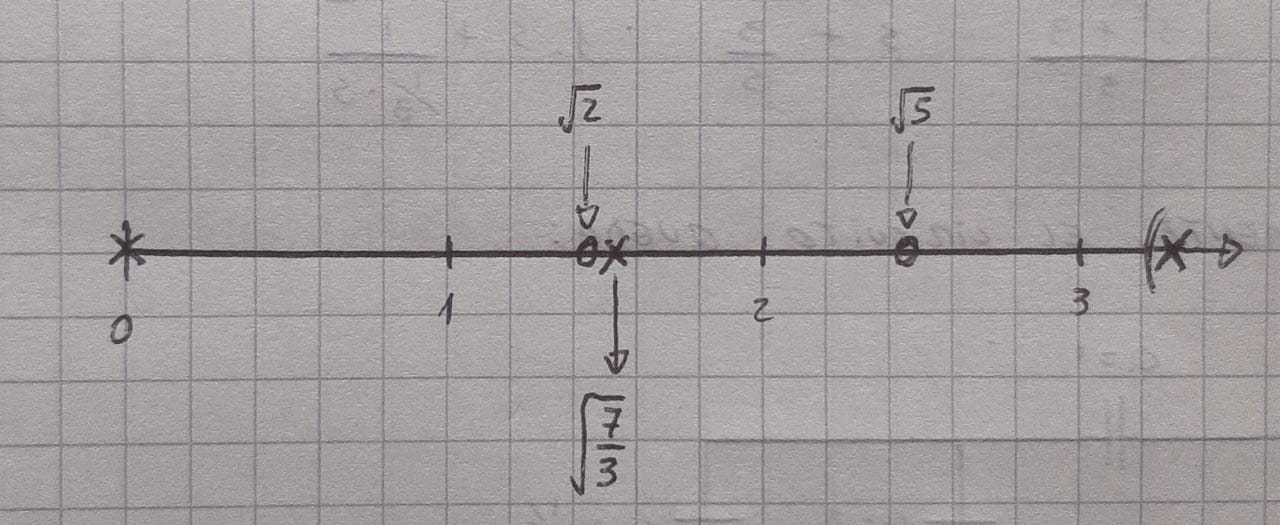 √2 √5
0 1 2 3
√(7/3)